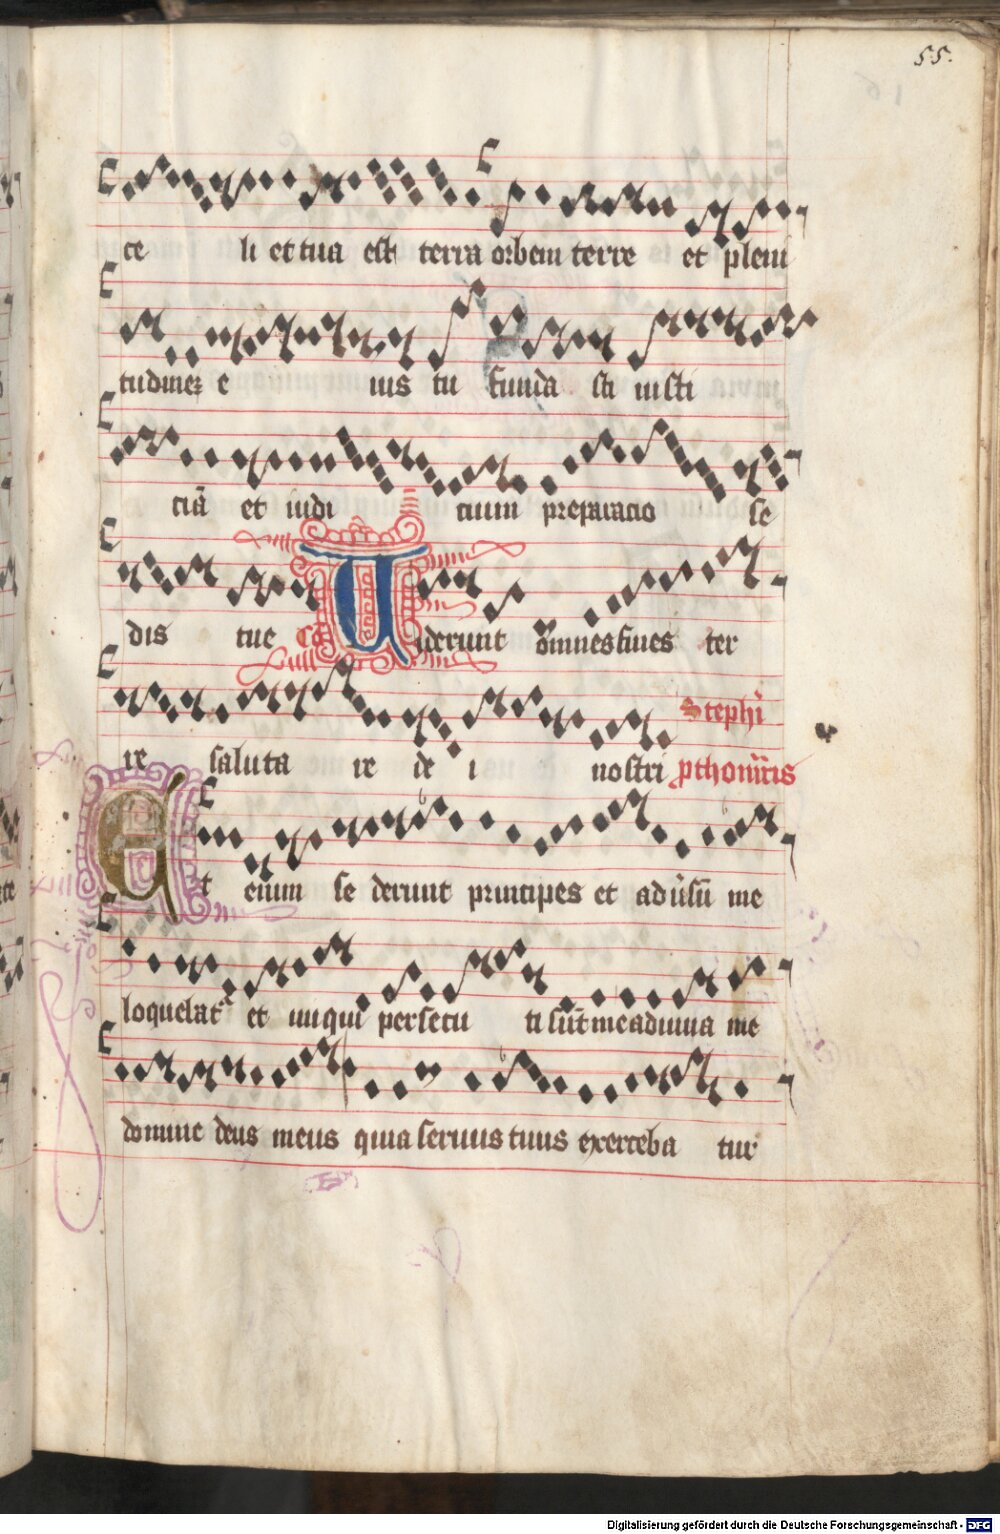 55.
ce li et tua est terra orbem terre et pleni
tudinez e ius tu funda sti iusti
ciā et iudi cium preparacio se
dis tue Cō Viderunt omnes fines ter
re saluta re de i nostri Stephī
prthom̄ris
Et enim se derunt principes et aduˀsū me
loquebātˀ et iniqui persecu ti sūt me adiuua me
domine deus meus quia seruus tuus exerceba tur
Digitalisierung gefördert durch die Deutsche Forschungsgemeinschaft - DFG